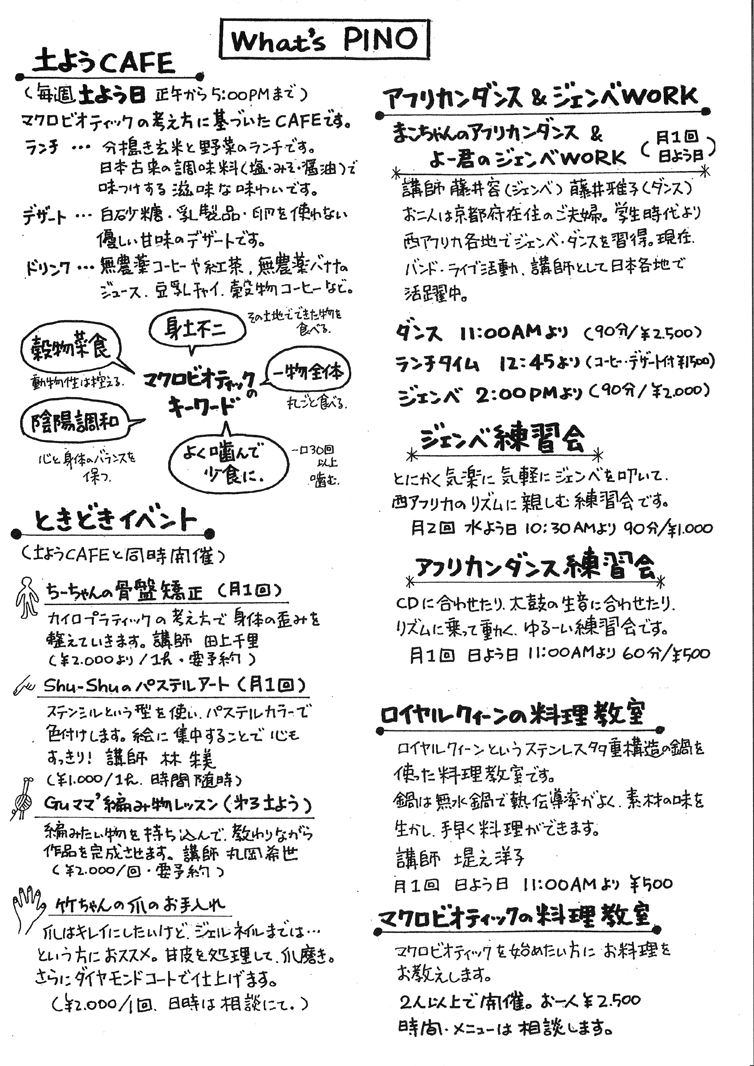 What's PINO
土ようCAFE
(毎週土よう日 正午から5:00PMまで)
マクロビオティックの考え方に基づいたCAFEです。
ランチ … 分搗き玄米と野菜のランチです。
日本古来の調味料(塩・みそ・醤油)で
味つけする滋味な味わいです。
デザート … 白砂糖・乳製品・卵を使わない
優しい甘味のデザートです。
ドリンク … 無農薬コーヒーや紅茶、無農薬バナナの
ジュース、豆乳チャイ、穀物コーヒーなど。
穀物菜食
動物性は控える.
身土不二
その土地でできた物を
食べる.
マクロビオティックの
キーワード
一物全体
丸ごと食べる.
陰陽調和
心と身体のバランスを
保つ.
よく噛んで
少食に.
一口30回
以上
噛む.
ときどきイベント
(土ようCAFEと同時開催)
ちーちゃんの骨盤矯正 (月1回)
カイロプラティックの考え方で身体の歪みを
整えていきます。講師 田上千里
(¥2.000より/1名・要予約)
Shu-Shuのパステルアート(月1回)
ステンシルという型を使い、パステルカラーで
色付けします。絵に集中することで心も
すっきり! 講師 林 朱美
(¥1.000/1名. 時間随時)
Guママ's編み物レッスン(第3土よう)
編みたい物を持ち込んで、教わりながら
作品を完成させます。講師 丸岡希世
(¥2.000/回・要予約)
竹ちゃんの爪のお手入れ
爪はキレイにしたいけど、ジェルネイルまでは…
という方におススメ。甘皮を処理して、爪磨き。
さらにダイヤモンドコートで仕上げます。
(¥2.000/1回. 日時は相談にて.)
アフリカンダンス & ジェンベWORK
まこちゃんのアフリカンダンス &
よー君のジェンベWORK
(月1回
日よう日)
講師 藤井容(ジェンベ) 藤井雅子(ダンス)
お二人は京都府在住のご夫婦。学生時代より
西アフリカ各地でジェンベ・ダンスを習得。現在、
バンド・ライブ活動、講師として日本各地で
活躍中。
ダンス 11:00AMより (90分/¥2.500)
ランチタイム 12:45より(コーヒー・デザート付¥1500)
ジェンベ 2:00PMより(90分/¥2.000)
ジェンベ練習会
とにかく気楽に気軽にジェンベを叩いて、
西アフリカのリズムに親しむ練習会です。
月2回 水よう日 10:30AMより 90分/¥1.000
アフリカンダンス練習会
CDに合わせたり、太鼓の生音に合わせたり、
リズムに乗って動く、ゆるーい練習会です。
月1回 日よう日 11:00AMより 60分/¥500
ロイヤルクィーンの料理教室
ロイヤルクィーンというステンレス多重構造の鍋を
使った料理教室です。
鍋は無水鍋で熱伝導率がよく、素材の味を
生かし、手早く料理ができます。
講師 堤之洋子
月1回 日よう日 11:00AMより ¥500
マクロビオティックの料理教室
マクロビオティックを始めたい方に お料理を
お教えします。
2人以上で開催。お一人¥2.500
時間・メニューは相談します。